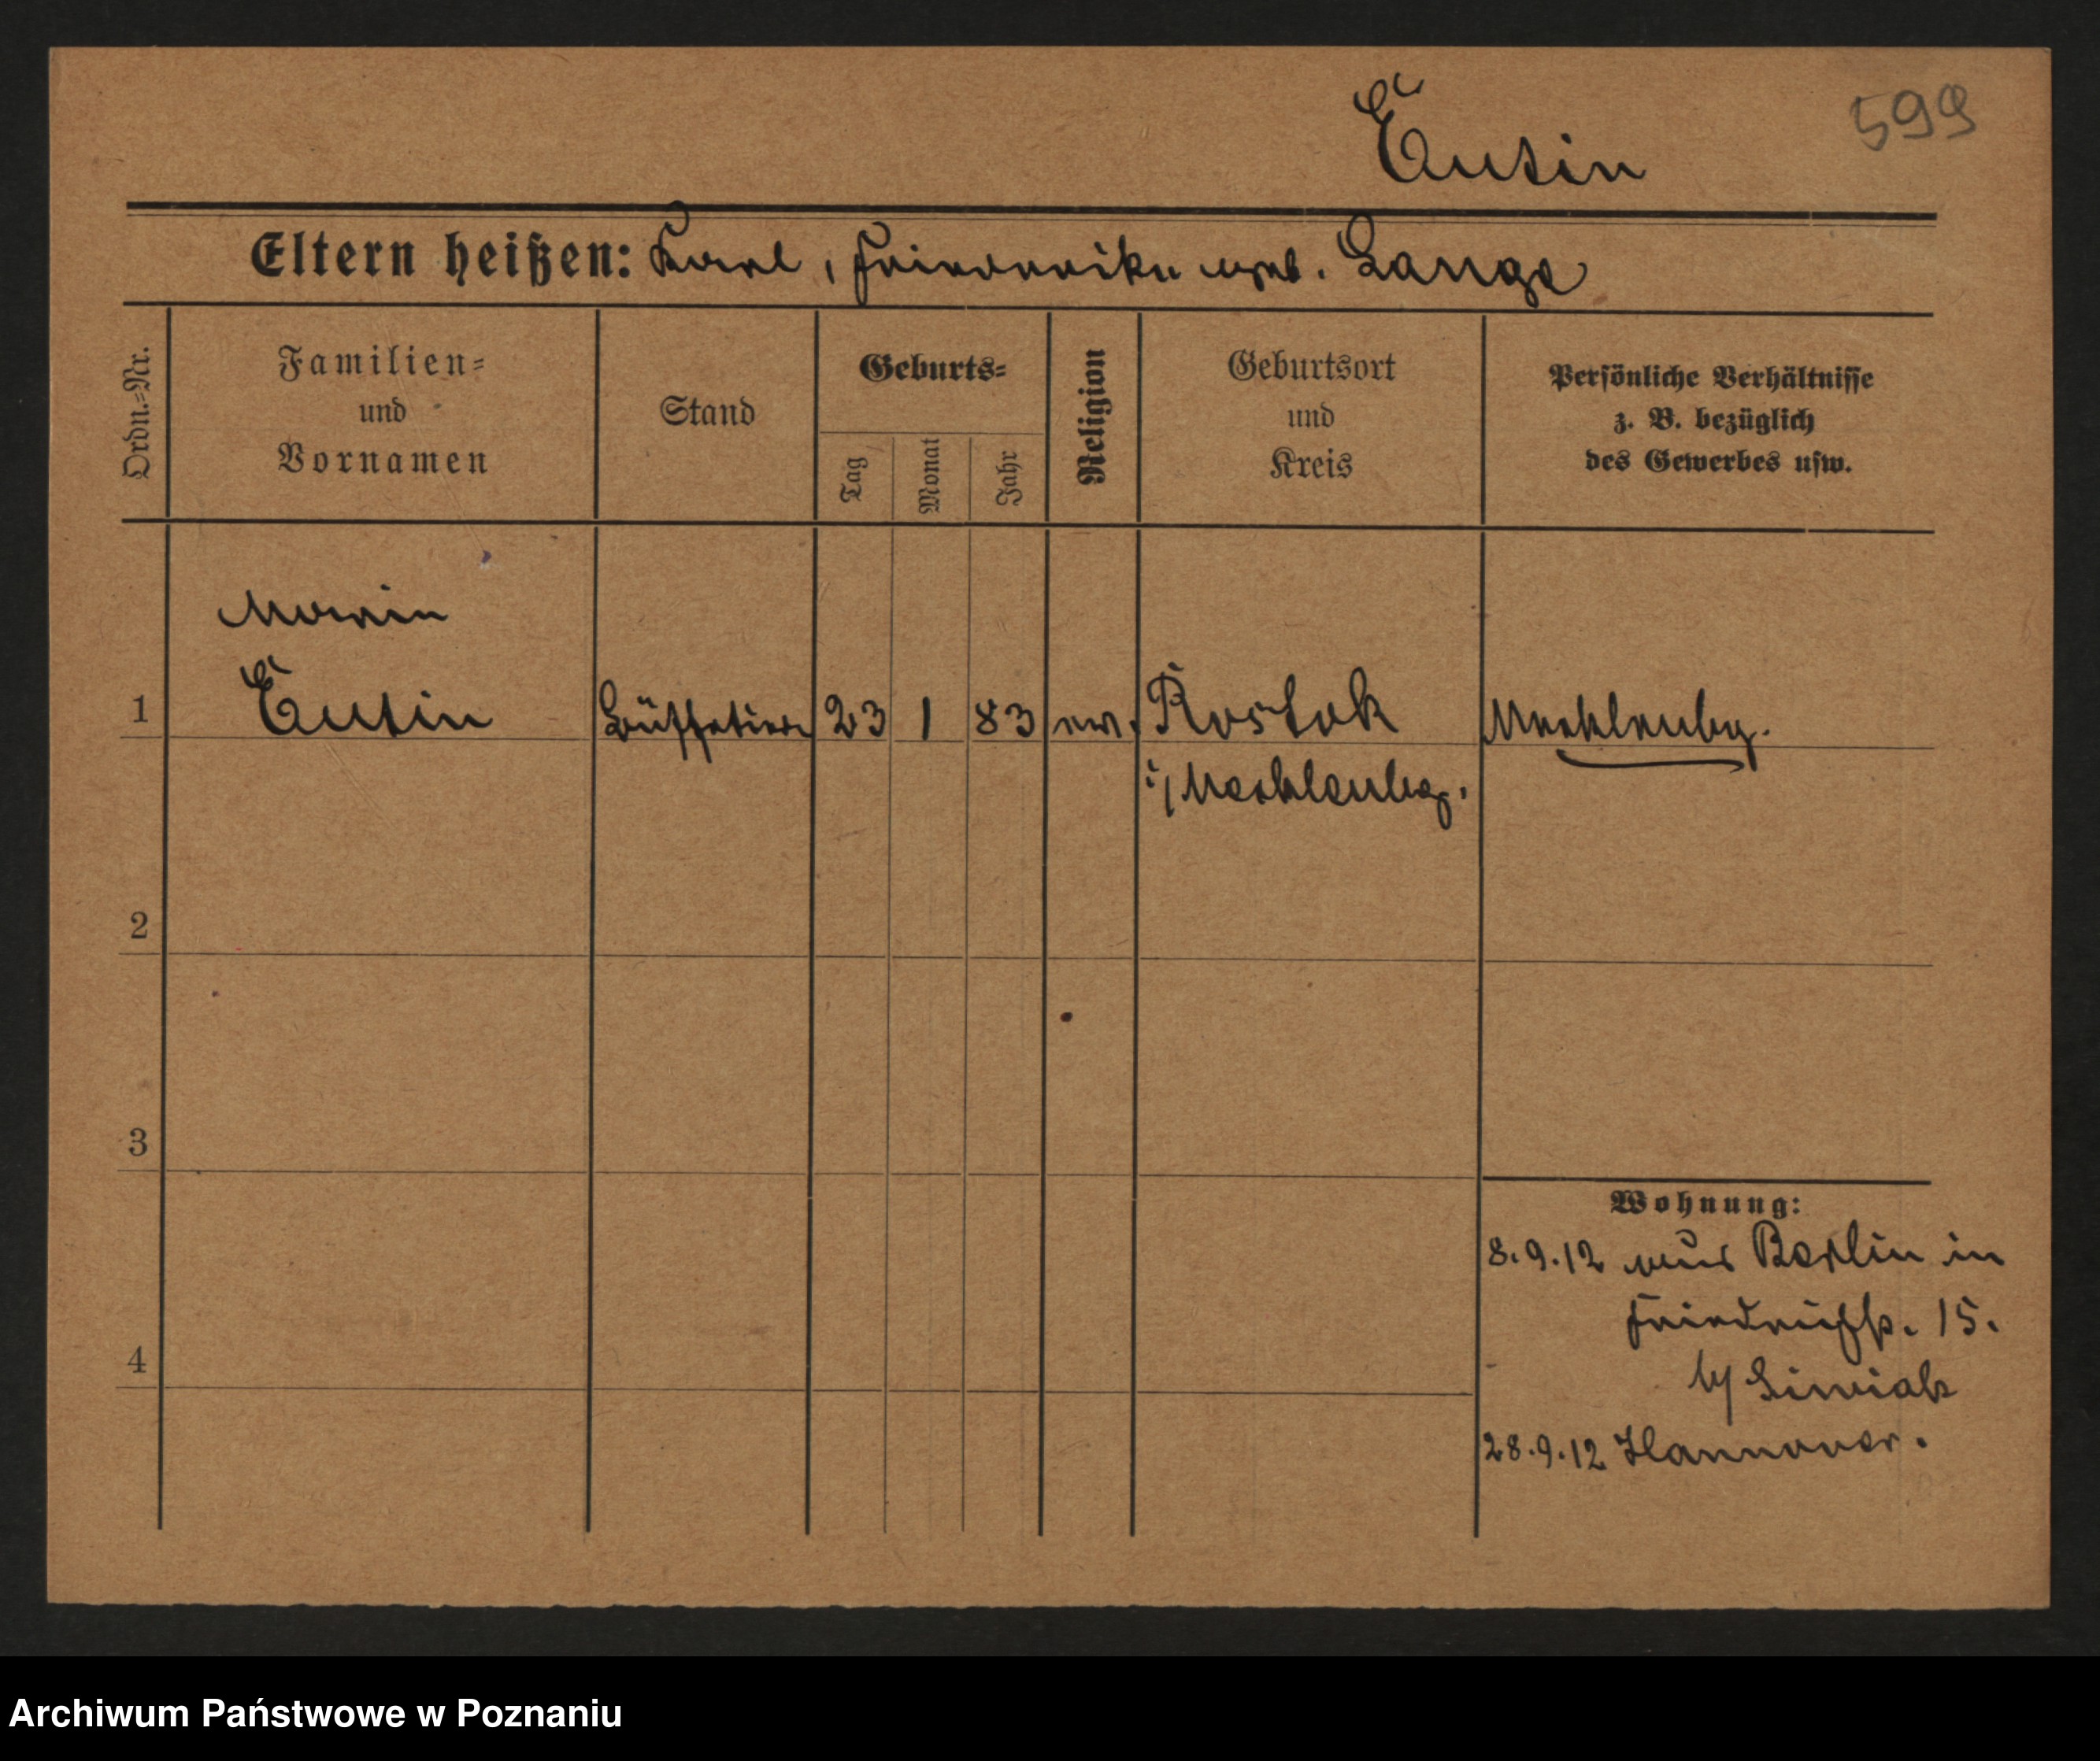 Eutin
599
Eltern heißen: Karl, Friederike geb. Lange
Ordn.=Nr.
Familien=
und
Vornamen
Stand
Geburts=
Tag
Monat
Jahr
Religion
Geburtsort
und
Kreis
Persönliche Verhältnisse
z. B. bezüglich
des Gewerbes usw.
Marie
1 Eutin Büffetiere 23 1 83 ev. Rostok Mecklenbg.
i/Mecklenbg.
2
3
4
Wohnung:
8.9.12 aus Berlin in
Friedrichstr. 15.
b/
28.9.12 Hannover.
Archiwum Państwowe w Poznaniu